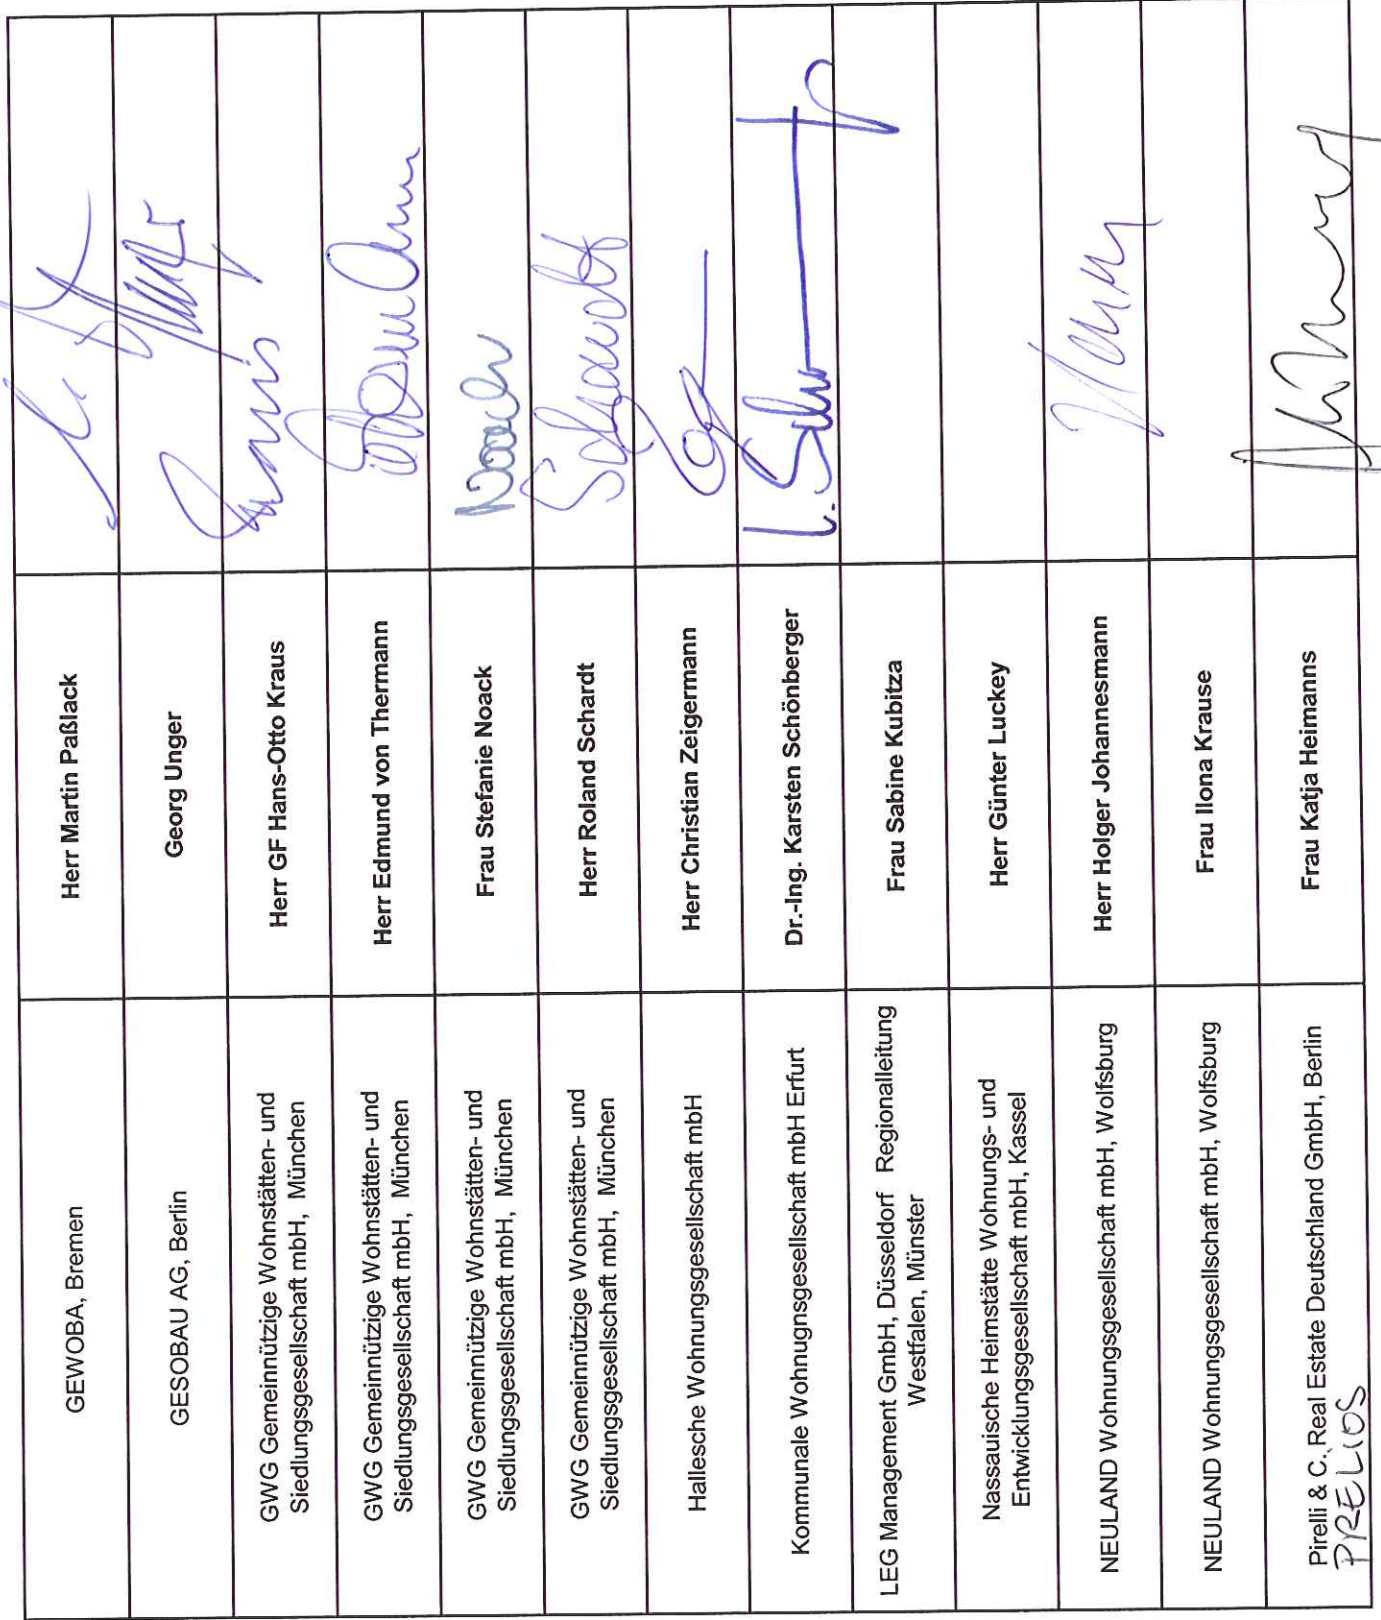 GEWOBA, Bremen
Herr Martin Paßlack
GESOBAU AG, Berlin
Georg Unger
GWG Gemeinnützige Wohnstätten- und
Siedlungsgesellschaft mbH, München
Herr GF Hans-Otto Kraus
GWG Gemeinnützige Wohnstätten- und
Siedlungsgesellschaft mbH, München
Herr Edmund von Thermann
GWG Gemeinnützige Wohnstätten- und
Siedlungsgesellschaft mbH, München
Frau Stefanie Noack
Noack
GWG Gemeinnützige Wohnstätten- und
Siedlungsgesellschaft mbH, München
Herr Roland Schardt
Schardt
Hallesche Wohnungsgesellschaft mbH
Herr Christian Zeigermann
Kommunale Wohnugnsgesellschaft mbH Erfurt
Dr.-Ing. Karsten Schönberger
LEG Management GmbH, Düsseldorf Regionalleitung
Westfalen, Münster
Frau Sabine Kubitza
Nassauische Heimstätte Wohnungs- und
Entwicklungsgesellschaft mbH, Kassel
Herr Günter Luckey
NEULAND Wohnungsgesellschaft mbH, Wolfsburg
Herr Holger Johannesmann
NEULAND Wohnungsgesellschaft mbH, Wolfsburg
Frau Ilona Krause
Pirelli & C. Real Estate Deutschland GmbH, Berlin
PRELIOS
Frau Katja Heimanns